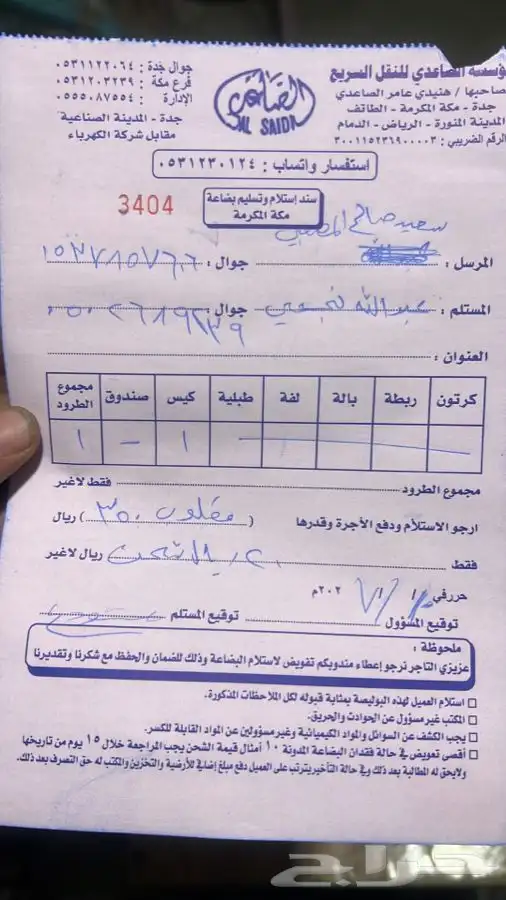 مؤسسة الصاعدي للنقل السريع
صاحبها / هنيدي عامر الصاعدي
جدة - مكة المكرمة - الطائف
المدينة المنورة - الرياض - الدمام
الرقم الضريبي : ٣٠٠١١٥٢٣٦٩٠٠٠٠٣
الصاعدي
AL SAIDI
جوال جدة : ٠٥٣١١٢٢٠٦٤
فرع مكة : ٠٥٣١٢٠٣٢٣٩
الإدارة : ٠٥٥٥٠٨٧٥٥٤
جدة - المدينة الصناعية
مقابل شركة الكهرباء
استفسار واتساب : ٠٥٣١٢٣٠١٢٤
سند إستلام وتسليم بضاعة
مكة المكرمة
3404
سعيد صالح
المرسل : جوال :
المستلم : عبدالله جوال :
العنوان :
كرتون ربطة بالة لفة طبلية كيس صندوق مجموع الطرود
١ - ١
مجموع الطرود فقط لاغير
ارجو الاستلام ودفع الأجرة وقدرها ( ) ريال
فقط ريال لاغير
حرر في / / ٢٠٢م
توقيع المسؤول توقيع المستلم
ملحوظة :
عزيزي التاجر نرجو إعطاء مندوبكم تفويض لاستلام البضاعة وذلك للضمان والحفظ مع شكرنا وتقديرنا
استلام العميل لهذه البوليصة بمثابة قبوله لكل الملاحظات المذكورة.
المكتب غير مسؤول عن الحوادث والحريق.
يجب الكشف عن السوائل والمواد الكيميائية وغير مسؤولين عن المواد القابلة للكسر.
أقصى تعويض في حالة فقدان البضاعة المدونة ١٠ أمثال قيمة الشحن يجب المراجعة خلال ١٥ يوم من تاريخها
ولايحق له المطالبة بعد ذلك وفي حالة التأخير يترتب على العميل دفع مبلغ إضافي للأرضية والتخزين والمكتب له حق التصرف بعد ذلك.
حراج